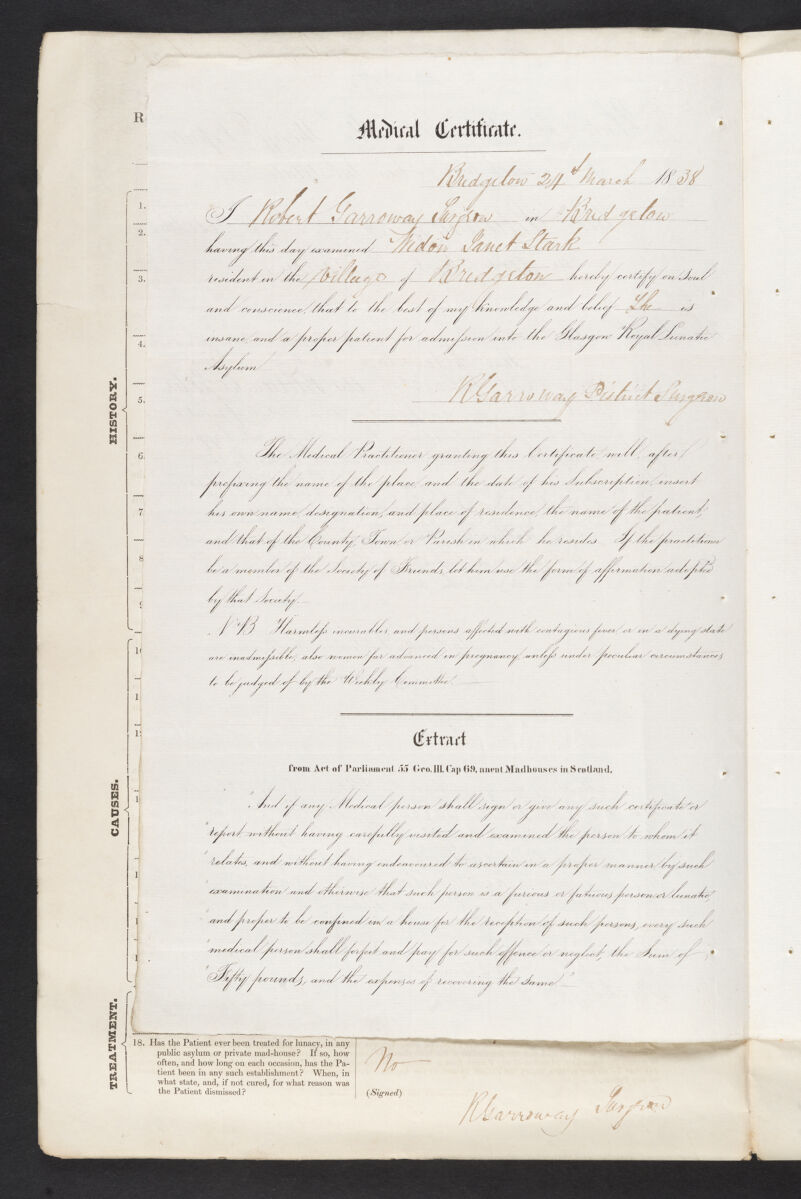 Medical Certificate.
Bridgeton 24th March 1838
I Robert Garroway Surgeon in Bridgeton
having this day examined Widow Janet Stark
resident in the Village of Bridgeton hereby certify on Soul
and conscience, that to the best of my Knowledge and belief She is
insane, and a proper patient for admission into the Glasgow Royal Lunatic
Asylum
RGarroway District Surgeon
The Medical Practitioner granting this Certificate will, after
prefixing the name of the place, and the date of his Subscription, insert
his own name, designation, and place of residence, the name of the patient,
and that of the County, Town or Parish in which he resides. If the practitioner
be a member of the Society of Friends, let him use the form of affirmation adopted
by that Society.
NB Harmless incurables and persons affected with contagious fever or in a dying state
are inadmissible, also women far advanced in pregnancy, unless under peculiar circumstances
to be judged of by the Weekly Committee.
Extract
from Act of Parliament 55 Geo. III. Cap 69, anent Madhouses in Scotland.
"And if any Medical person shall sign or give any such certificate or
"report without having carefully visited and examined the person to whom it
"relates, and without having endeavoured to ascertain in a proper manner by such
"examination and otherwise that such person is a furious or fatuous person or lunatic,
"and proper to be confined in a house for the reception of such persons, every such
"medical person shall forfeit and pay for such offence or neglect, the Sum of
"Fifty pounds, and the expenses of recovering the same"
R
HISTORY.
1.
2.
3.
4.
5.
6.
7
8
9
CAUSES.
TREATMENT.
18. Has the Patient ever been treated for lunacy, in any
public asylum or private mad-house? If so, how
often, and how long on each occasion, has the Pa-
tient been in any such establishment? When, in
what state, and, if not cured, for what reason was
the Patient dismissed?
No
(Signed)
RGarroway Surgeon